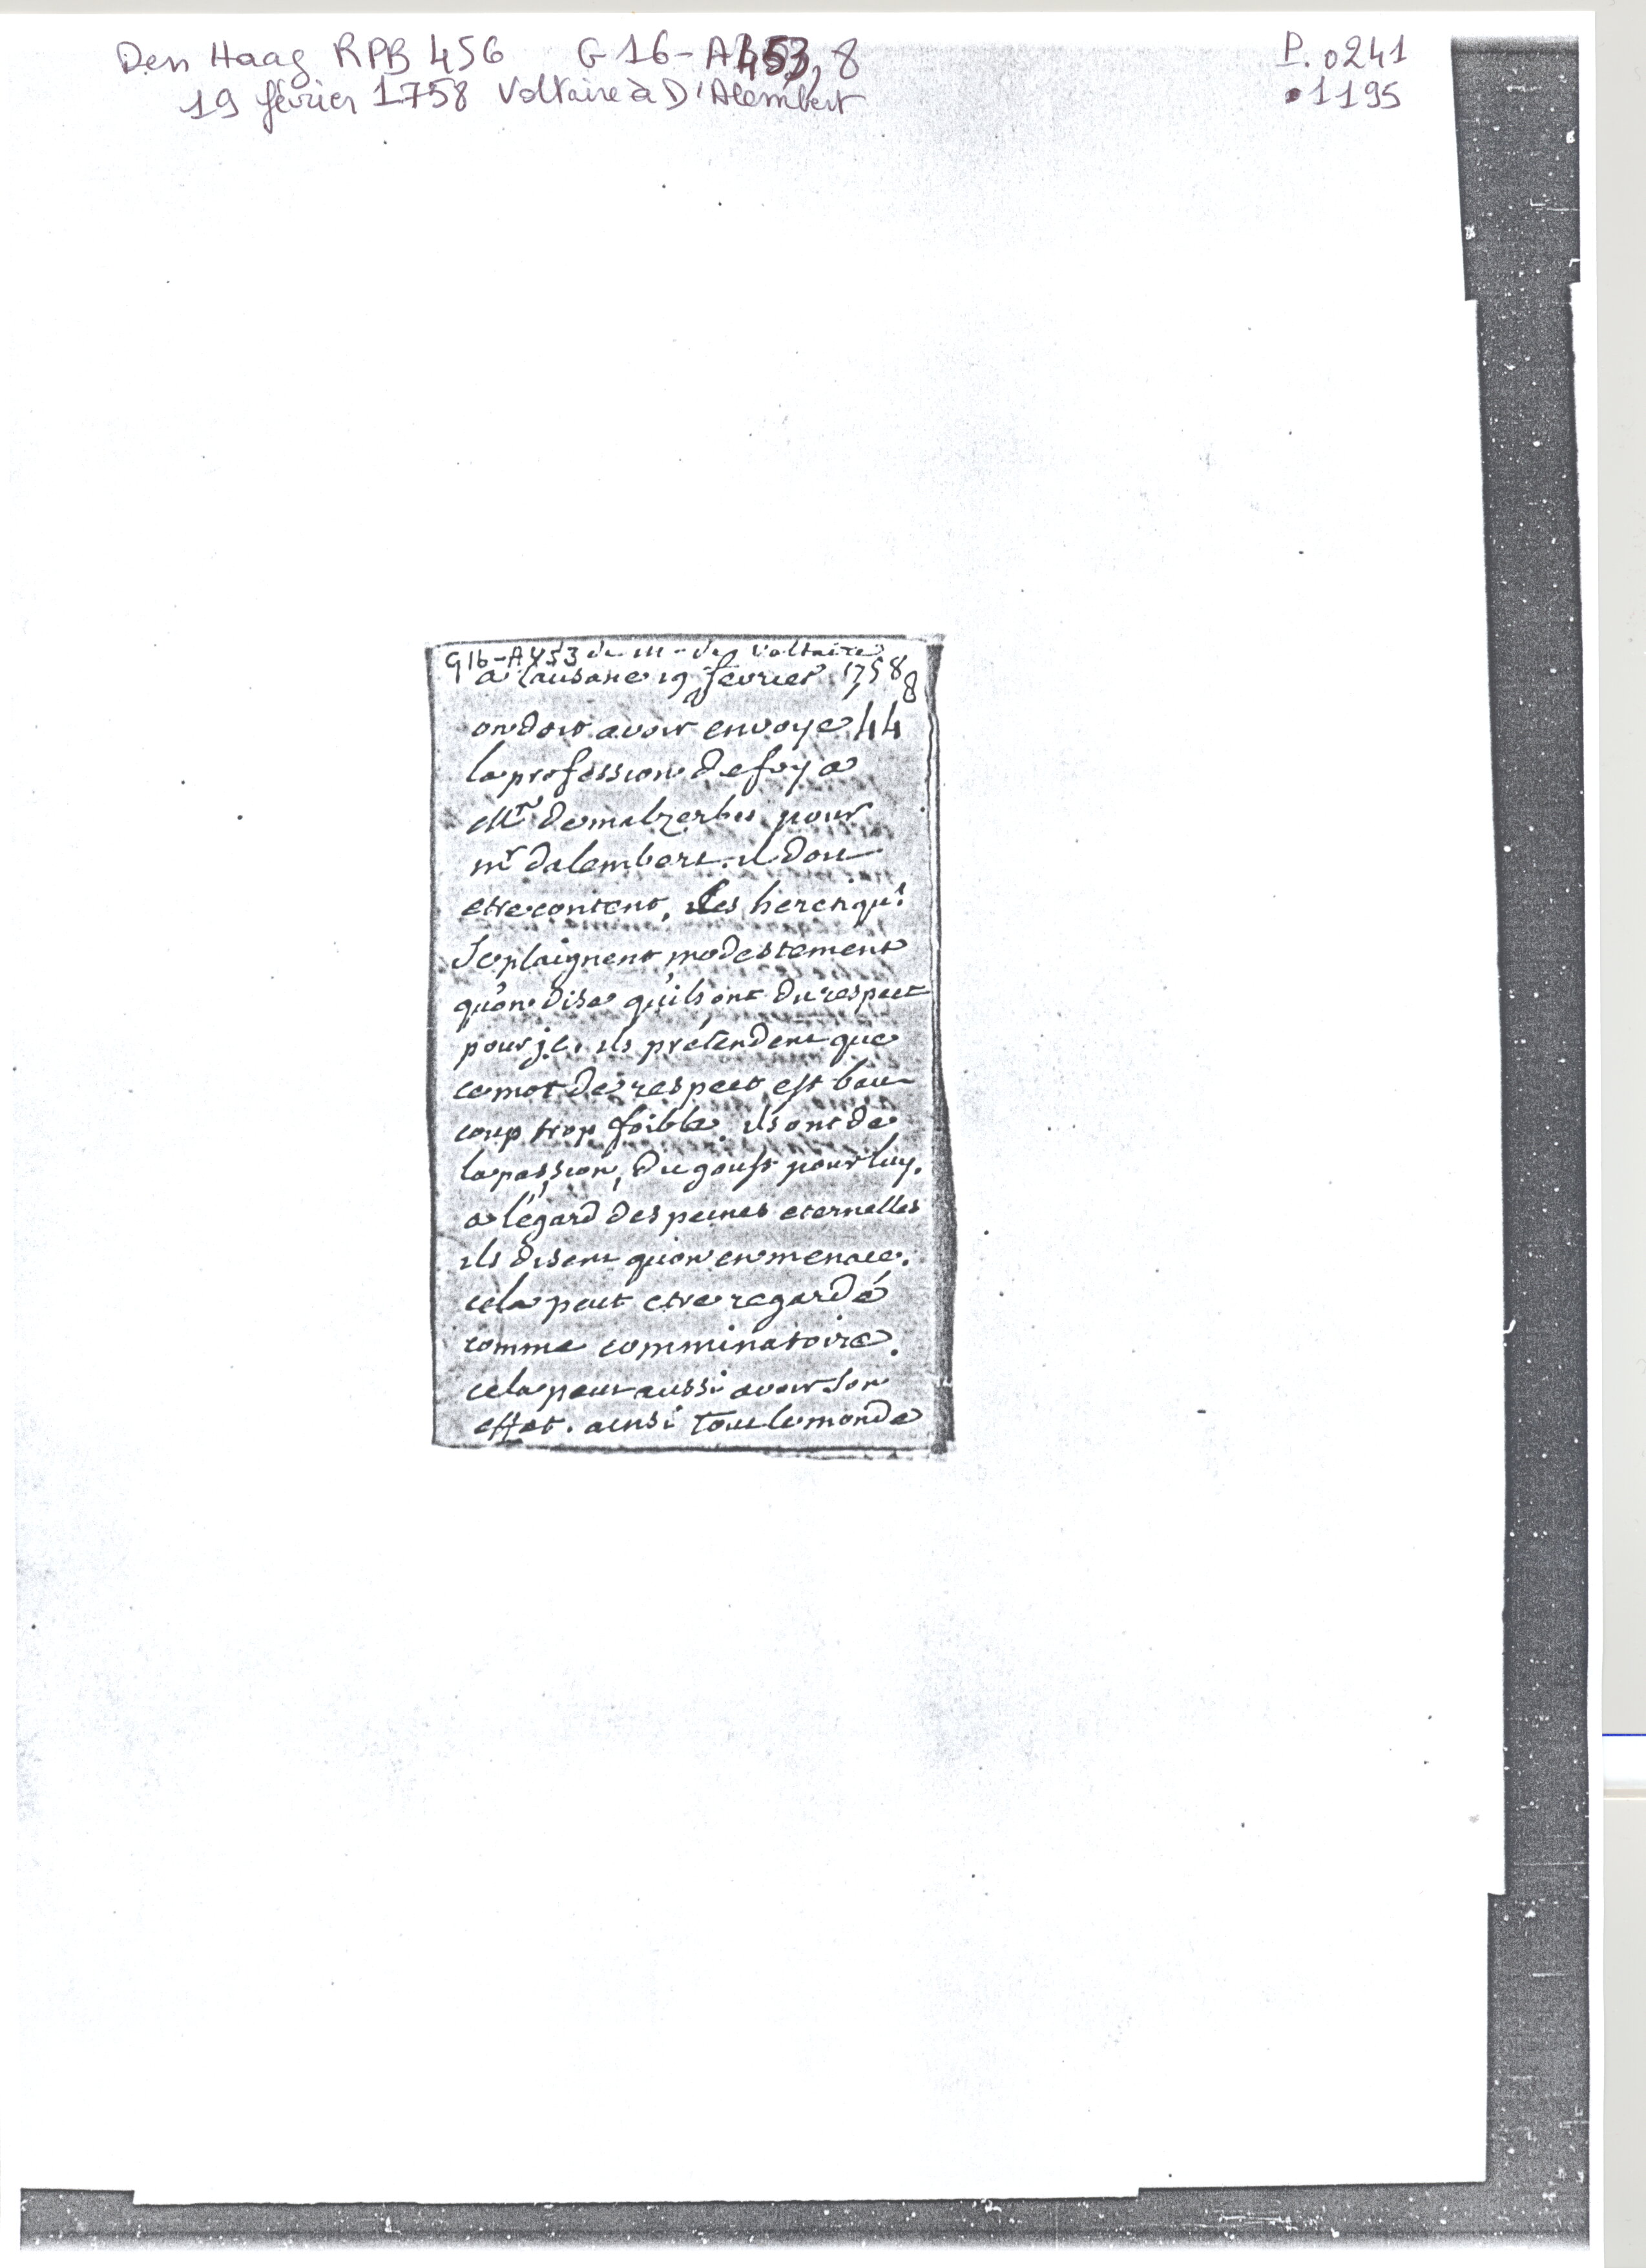 Den Haag RPB 456 G 16-A453, 8
19 février 1758 Voltaire à D'Alembert
P. 0241
1195
G16-A453 de m. de voltaire
a lausane 19 fevrier 1758 8
on doit avoir envoyé 44
la profession de foy a
Mr de malzerbes pour
mr dalembert. il doit
etre content, les
se plaignent modestement
qu'on dise qu'ils ont du respect
pour j. c. ils prétendent que
ce mot de respect est bau
coup trop foible. ils ont de
la passion, du goust pour luy.
a l'egard des peines eternelles
ils disent qu'on en menace.
cela peut etre regardé
comme comminatoire.
cela peut aussi avoir son
effet. ainsi tout le monde